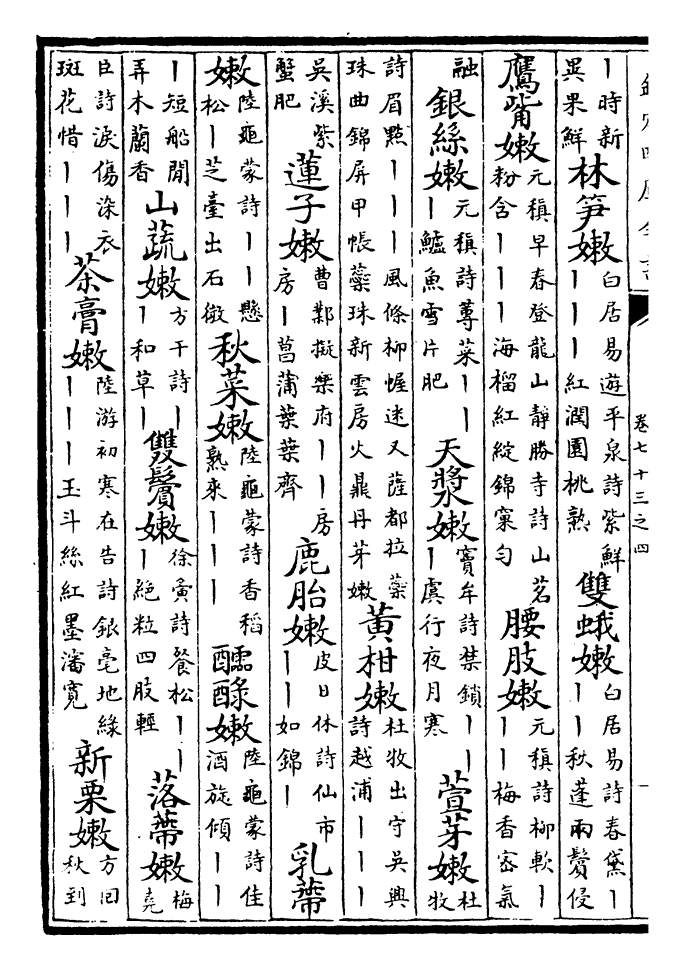 欽定四庫全書
卷七十三之四
丨時新異果鮮 林筍嫩 白居易遊平泉詩紫鮮丨丨丨紅潤園桃熟 雙蛾嫩 白居易詩春黛丨丨丨秋蓬兩鬢侵
鷹觜嫩 元稹早春登龍山靜勝寺詩山茗粉含丨丨丨海榴紅綻錦窠勻 腰肢嫩 元稹詩柳軟丨丨丨梅香密氣
融 銀絲嫩 元稹詩蓴菜丨丨丨鱸魚雪片肥 天漿嫩 竇牟詩禁鎖丨丨丨虞行夜月寒 萱芽嫩 杜牧
詩眉點丨丨丨風條柳幄迷又薩都拉蘂珠曲錦屏甲帳蘂珠新雲房火鼎丹芽嫩 黃柑嫩 杜牧出守吳興詩越浦丨丨丨
吳溪紫蟹肥 蓮子嫩 曹鄴擬樂府丨丨房房丨菖蒲葉葉齊 鹿胎嫩 皮日休詩仙市丨丨如錦丨 乳蔕
嫩 陸龜蒙詩丨丨懸松丨芝臺出石微 秋菜嫩 陸龜蒙詩香稻熟來丨丨丨 醹醁嫩 陸龜蒙詩佳酒旋傾丨丨
丨短船閒弄木蘭香 山蔬嫩 方干詩丨丨和草丨 雙鬢嫩 徐夤詩餐松丨丨丨絕粒四肢輕 落蔕嫩 梅堯
臣詩淚傷染衣斑花惜丨丨丨 茶膏嫩 陸游初寒在告詩銀毫地綠丨丨丨玉斗絲紅墨瀋寬 新栗嫩 方回秋到
一